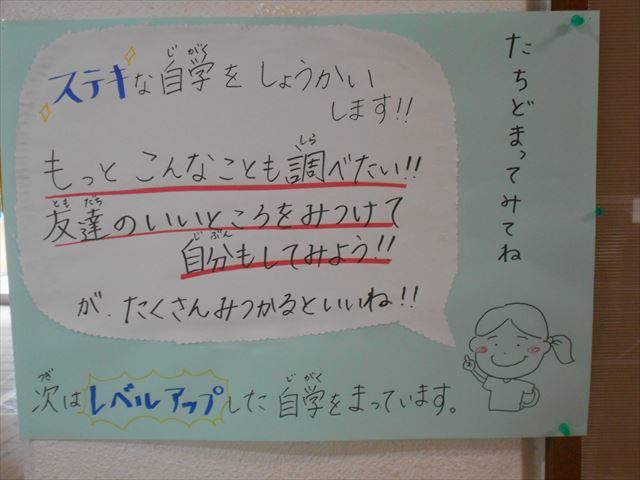 たちどまってみてね
ステキな自学をしょうかい
します!!
もっとこんなことも調べたい!!
友達のいいところをみつけて
自分もしてみよう!!
が、たくさんみつかるといいね!!
次はレベルアップした自学をまっています。